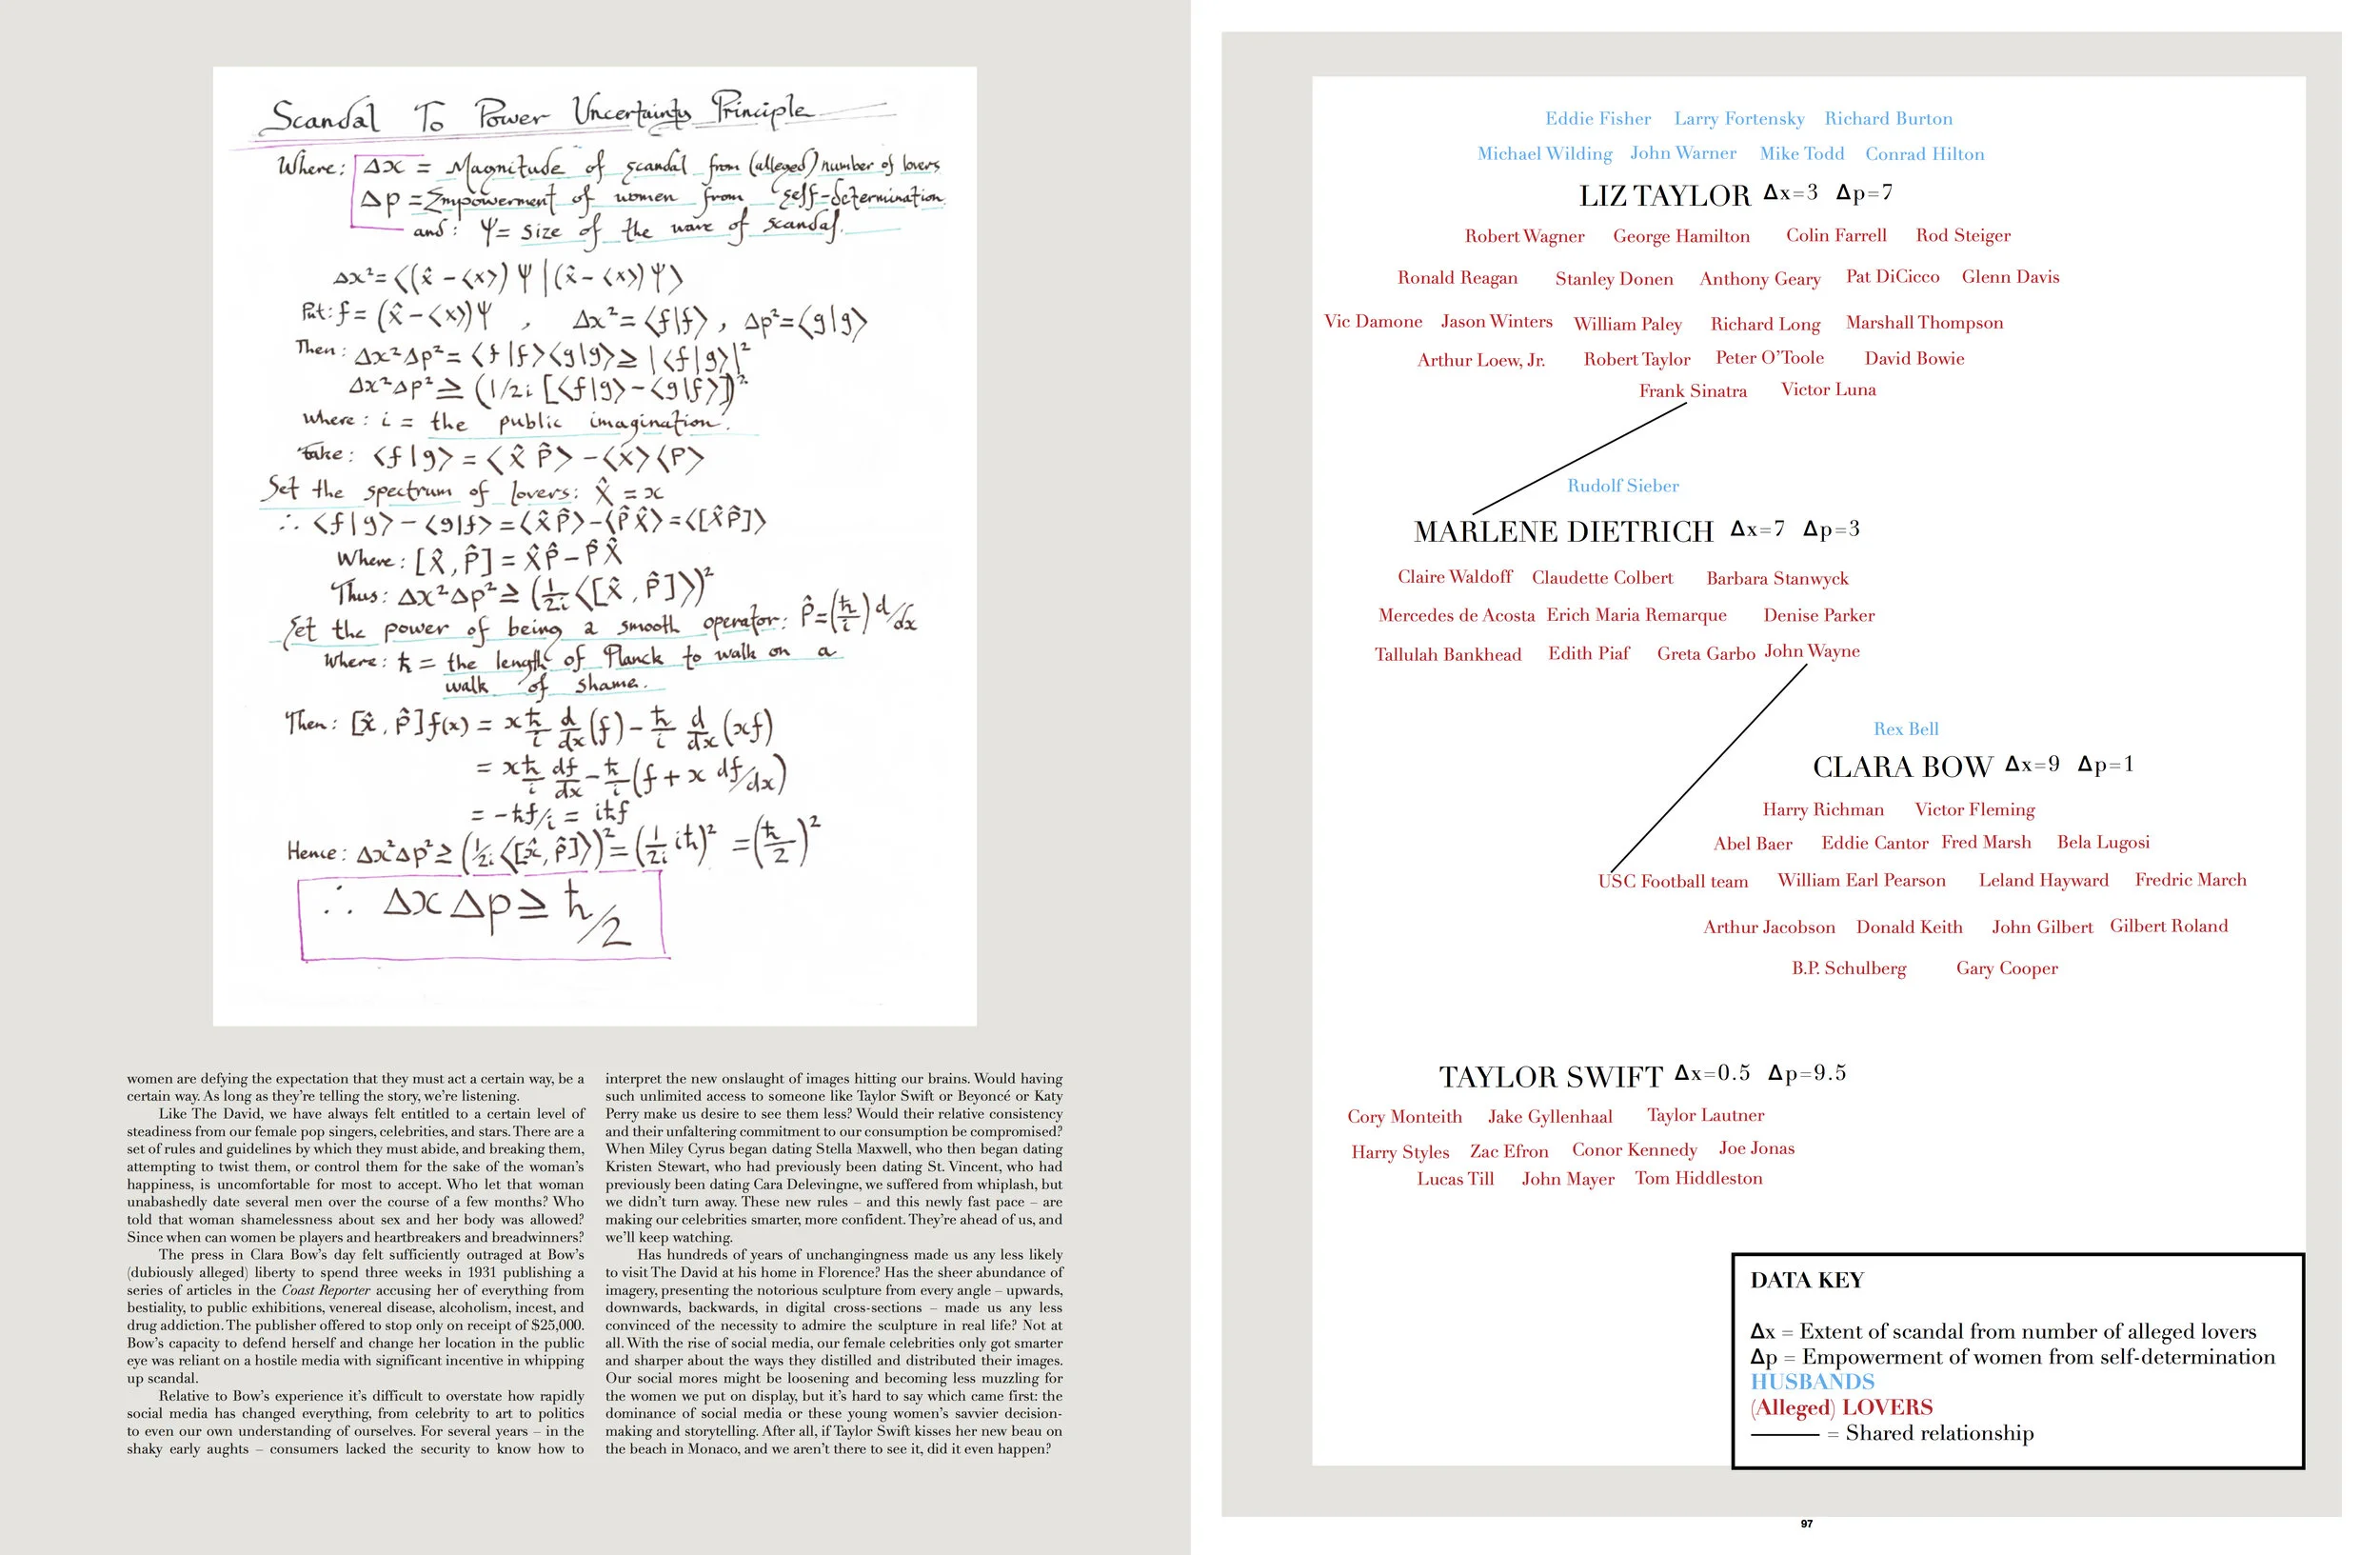 Scandal To Power Uncertainty Principle
Where: Δx = Magnitude of scandal from (alleged) number of lovers
Δp = Empowerment of women from self-determination
and: Ψ = size of the wave of scandal.
Δx² = ⟨(x̂ - ⟨x⟩) Ψ | (x̂ - ⟨x⟩) Ψ⟩
Put: f = (x̂ - ⟨x⟩)Ψ , Δx² = ⟨f|f⟩ , Δp² = ⟨g|g⟩
Then: Δx²Δp² = ⟨f|f⟩⟨g|g⟩ ≥ |⟨f|g⟩|²
Δx²Δp² ≥ (1/2i [⟨f|g⟩ - ⟨g|f⟩])²
Where: i = the public imagination.
take: ⟨f|g⟩ = ⟨x̂ p̂⟩ - ⟨x⟩⟨p⟩
Set the spectrum of lovers: x̂ = x
∴ ⟨f|g⟩ - ⟨g|f⟩ = ⟨x̂ p̂⟩ - ⟨p̂ x̂⟩ = ⟨[x̂ p̂]⟩
Where: [x̂, p̂] = x̂p̂ - p̂x̂
Thus: Δx²Δp² ≥ (1/2i ⟨[x̂, p̂]⟩)²
Set the power of being a smooth operator: p̂ = (ħ/i) d/dx
Where: ħ = the length of Planck to walk on a
walk of shame.
Then: [x̂, p̂] f(x) = x ħ/i d/dx (f) - ħ/i d/dx (xf)
= x ħ/i df/dx - ħ/i (f + x df/dx)
= -ħf/i = iħf
Hence: Δx²Δp² ≥ (1/2i ⟨[x̂, p̂]⟩)² = (1/2i iħ)² = (ħ/2)²
∴ Δx Δp ≥ ħ/2
women are defying the expectation that they must act a certain way, be a
certain way. As long as they're telling the story, we're listening.
Like The David, we have always felt entitled to a certain level of
steadiness from our female pop singers, celebrities, and stars. There are a
set of rules and guidelines by which they must abide, and breaking them,
attempting to twist them, or control them for the sake of the woman's
happiness, is uncomfortable for most to accept. Who let that woman
unabashedly date several men over the course of a few months? Who
told that woman shamelessness about sex and her body was allowed?
Since when can women be players and heartbreakers and breadwinners?
The press in Clara Bow's day felt sufficiently outraged at Bow's
(dubiously alleged) liberty to spend three weeks in 1931 publishing a
series of articles in the Coast Reporter accusing her of everything from
bestiality, to public exhibitions, venereal disease, alcoholism, incest, and
drug addiction. The publisher offered to stop only on receipt of $25,000.
Bow's capacity to defend herself and change her location in the public
eye was reliant on a hostile media with significant incentive in whipping
up scandal.
Relative to Bow's experience it's difficult to overstate how rapidly
social media has changed everything, from celebrity to art to politics
to even our own understanding of ourselves. For several years – in the
shaky early aughts – consumers lacked the security to know how to
interpret the new onslaught of images hitting our brains. Would having
such unlimited access to someone like Taylor Swift or Beyoncé or Katy
Perry make us desire to see them less? Would their relative consistency
and their unfaltering commitment to our consumption be compromised?
When Miley Cyrus began dating Stella Maxwell, who then began dating
Kristen Stewart, who had previously been dating St. Vincent, who had
previously been dating Cara Delevingne, we suffered from whiplash, but
we didn't turn away. These new rules – and this newly fast pace – are
making our celebrities smarter, more confident. They're ahead of us, and
we'll keep watching.
Has hundreds of years of unchangingness made us any less likely
to visit The David at his home in Florence? Has the sheer abundance of
imagery, presenting the notorious sculpture from every angle – upwards,
downwards, backwards, in digital cross-sections – made us any less
convinced of the necessity to admire the sculpture in real life? Not at
all. With the rise of social media, our female celebrities only got smarter
and sharper about the ways they distilled and distributed their images.
Our social mores might be loosening and becoming less muzzling for
the women we put on display, but it's hard to say which came first: the
dominance of social media or these young women's savvier decision-
making and storytelling. After all, if Taylor Swift kisses her new beau on
the beach in Monaco, and we aren't there to see it, did it even happen?
Eddie Fisher Larry Fortensky Richard Burton
Michael Wilding John Warner Mike Todd Conrad Hilton
LIZ TAYLOR Δx=3 Δp=7
Robert Wagner George Hamilton Colin Farrell Rod Steiger
Ronald Reagan Stanley Donen Anthony Geary Pat DiCicco Glenn Davis
Vic Damone Jason Winters William Paley Richard Long Marshall Thompson
Arthur Loew, Jr. Robert Taylor Peter O'Toole David Bowie
Frank Sinatra Victor Luna
Rudolf Sieber
MARLENE DIETRICH Δx=7 Δp=3
Claire Waldoff Claudette Colbert Barbara Stanwyck
Mercedes de Acosta Erich Maria Remarque Denise Parker
Tallulah Bankhead Edith Piaf Greta Garbo John Wayne
Rex Bell
CLARA BOW Δx=9 Δp=1
Harry Richman Victor Fleming
Abel Baer Eddie Cantor Fred Marsh Bela Lugosi
USC Football team William Earl Pearson Leland Hayward Fredric March
Arthur Jacobson Donald Keith John Gilbert Gilbert Roland
B.P. Schulberg Gary Cooper
TAYLOR SWIFT Δx=0.5 Δp=9.5
Cory Monteith Jake Gyllenhaal Taylor Lautner
Harry Styles Zac Efron Conor Kennedy Joe Jonas
Lucas Till John Mayer Tom Hiddleston
DATA KEY
Δx = Extent of scandal from number of alleged lovers
Δp = Empowerment of women from self-determination
HUSBANDS
(Alleged) LOVERS
= Shared relationship
97